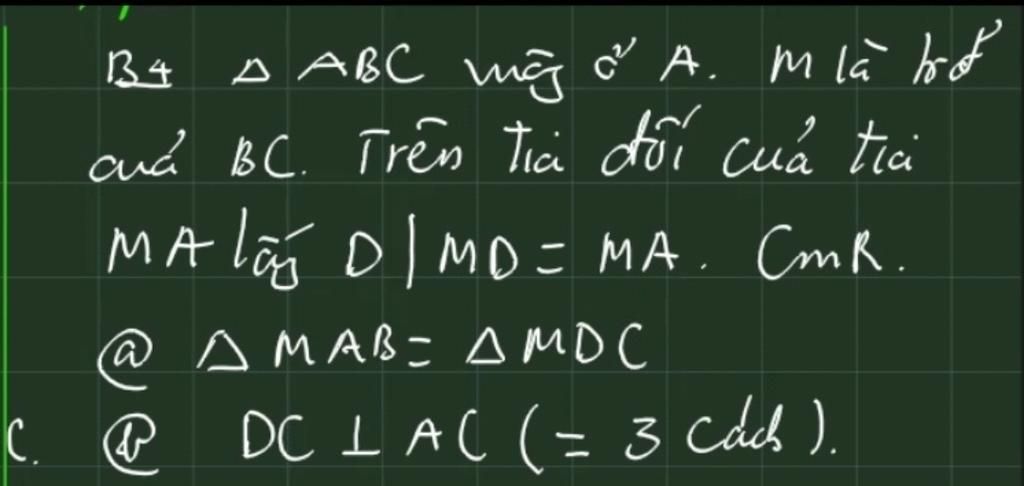 B4 △ ABC vuông ở A. M là trđ
của BC. Trên tia đối của tia
MA lấy D | MD = MA. CmR.
ⓐ △ MAB = △ MDC
C. ⓑ DC ⊥ AC (= 3 cách).